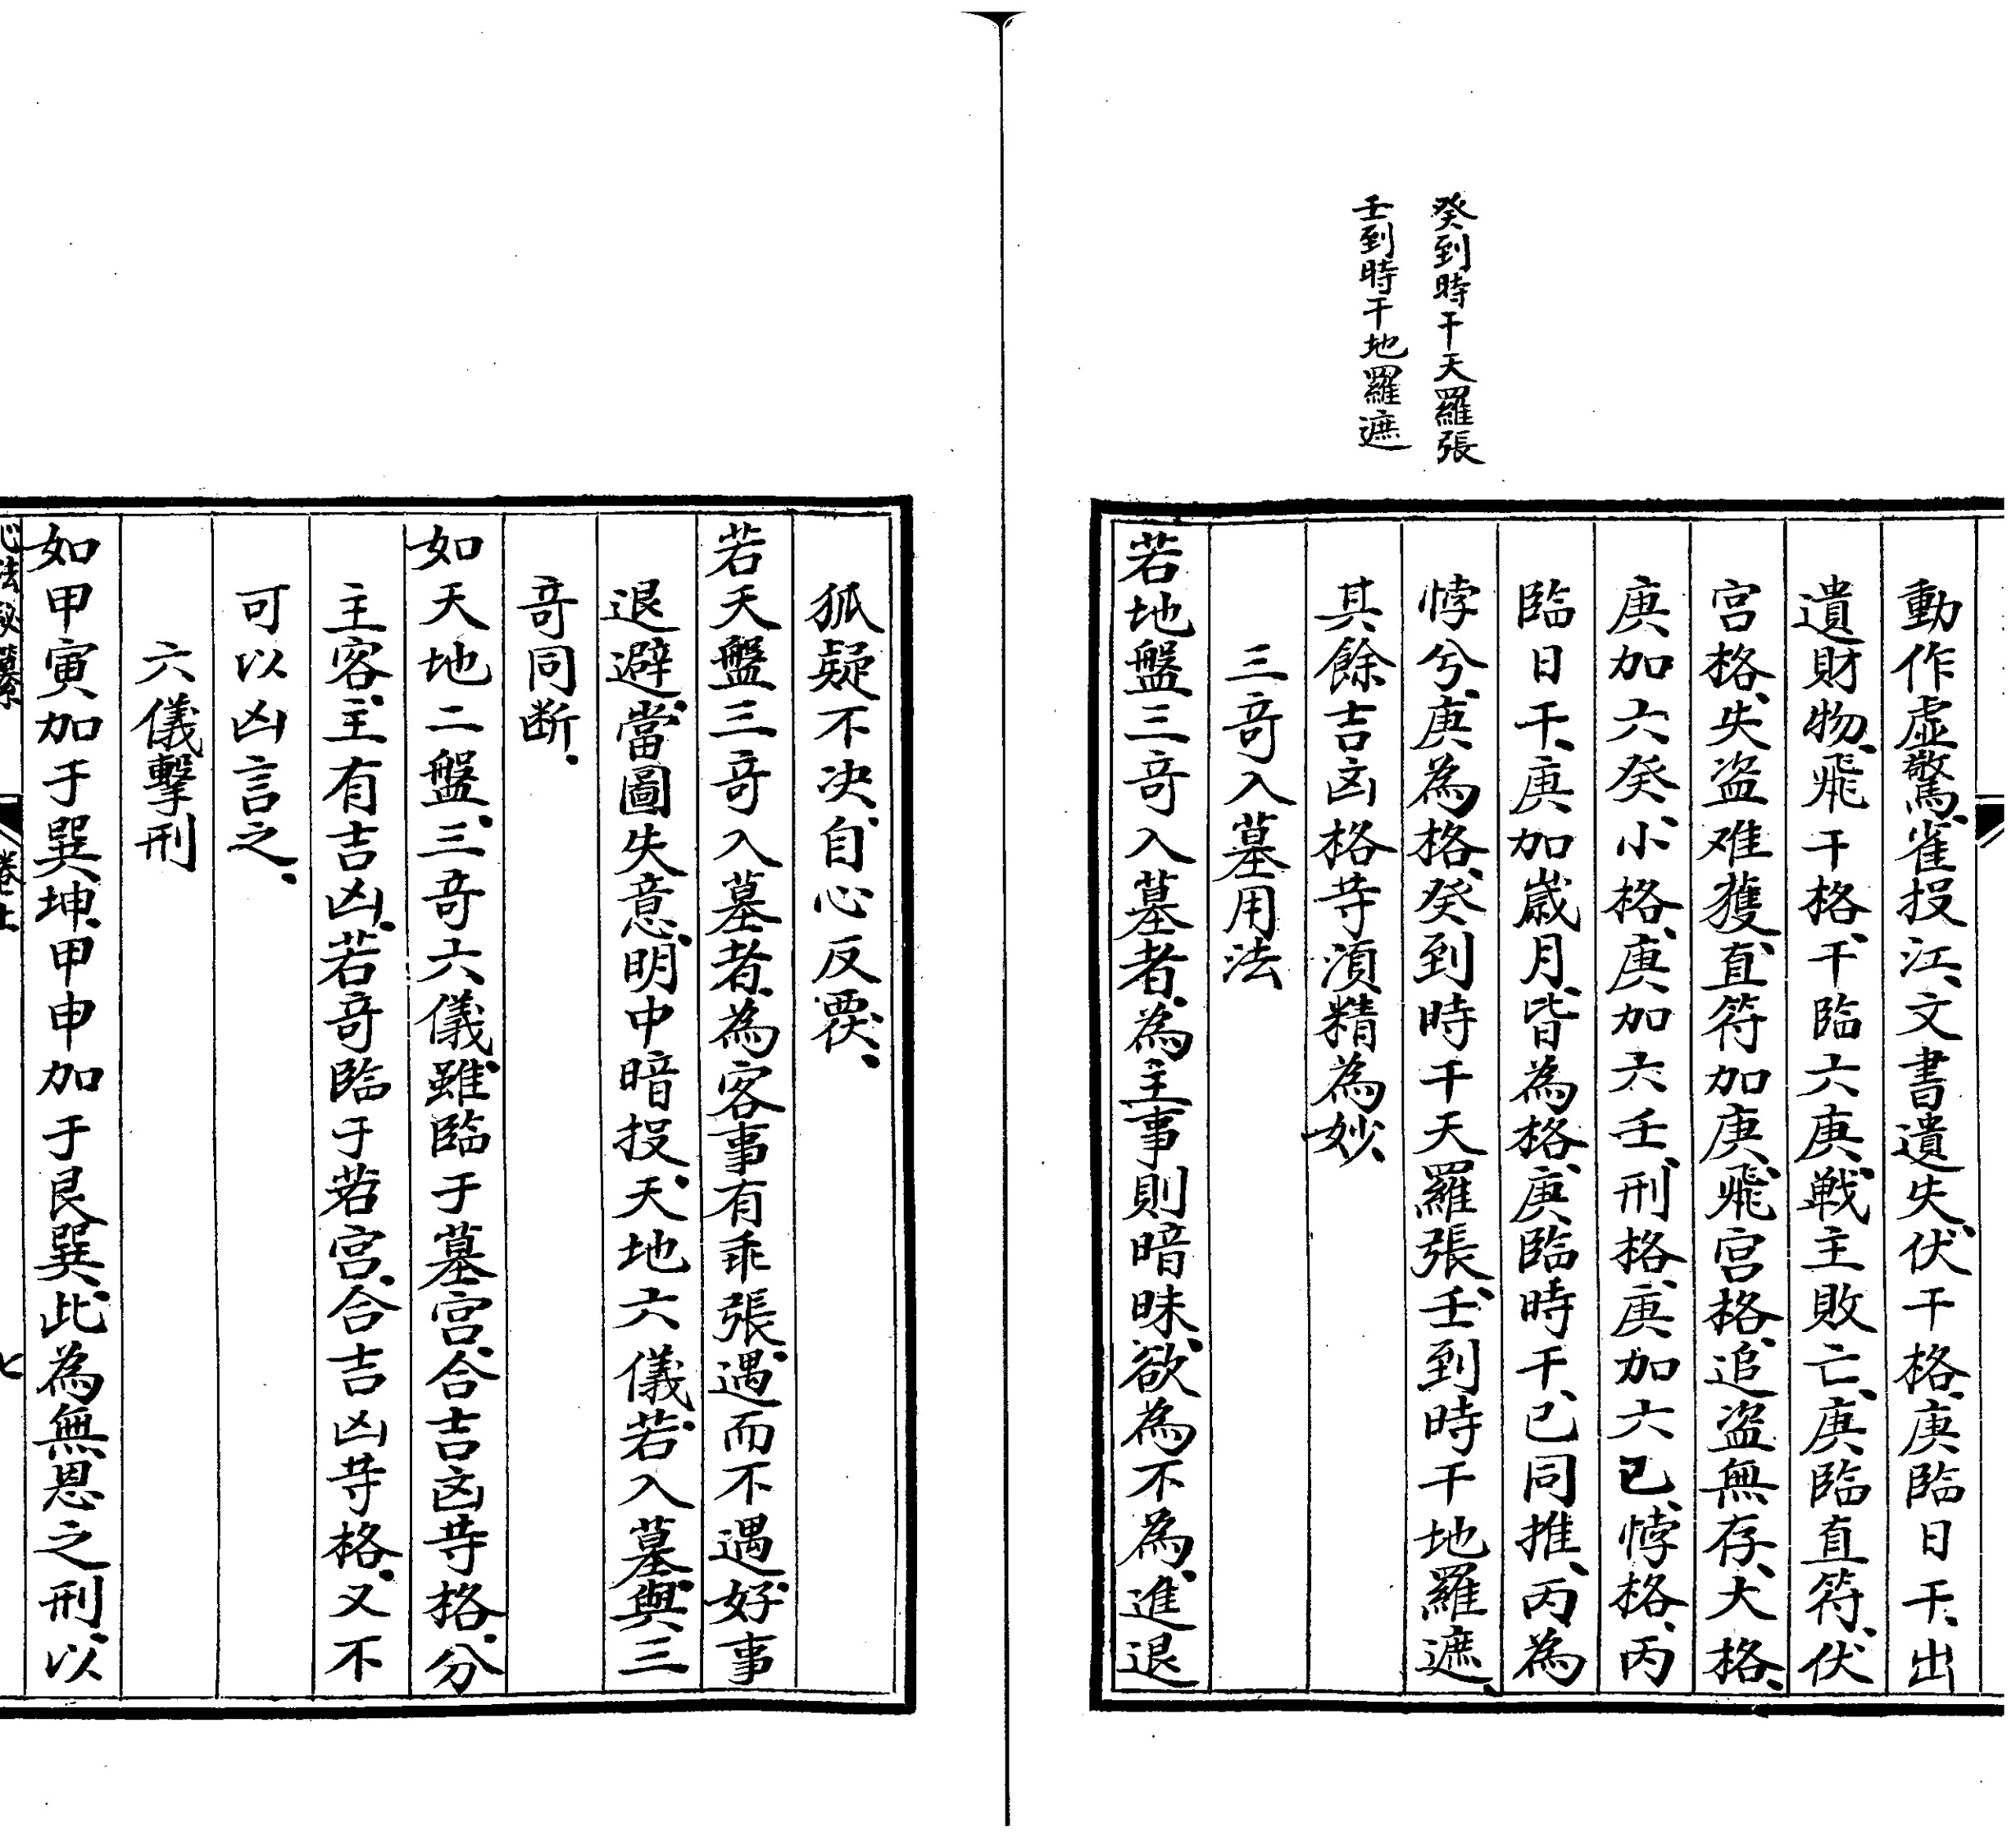 癸到時干天羅張
壬到時干地羅遮
動作虛驚、雀投江、文書遺失、伏干格、庚臨日干、出
遺財物、飛干格、干臨六庚、戦主敗亡、庚臨直符、伏
宮格、失盗难獲、直符加庚、飛宮格、追盗無存、大格、
庚加六癸、小格、庚加六壬、刑格、庚加六已、悖格、丙
臨日干、庚加歲月、皆為格、庚臨時干、已同推、丙為
悖兮、庚為格、癸到時干天羅張、壬到時干地羅遮、
其餘吉凶格等須精為妙、
三竒入墓用法
若地盤三竒入墓者、為主事則暗昧、欲為不為、進退
狐疑不决、自心反覆、
若天盤三竒入墓者、為客事有乖張、遇而不遇、好事
退避、當圖失意、明中暗投、天地六儀、若入墓與三
竒同断、
如天地二盤、三竒六儀、雖臨于墓宮、合吉凶等格、分
主客、主有吉凶、若竒臨于若宮、合吉凶等格、又不
可以凶言之、
六儀擊刑
如甲寅加于巽坤、甲申加于艮巽、此為無恩之刑、以
心法秘纂 卷上 七